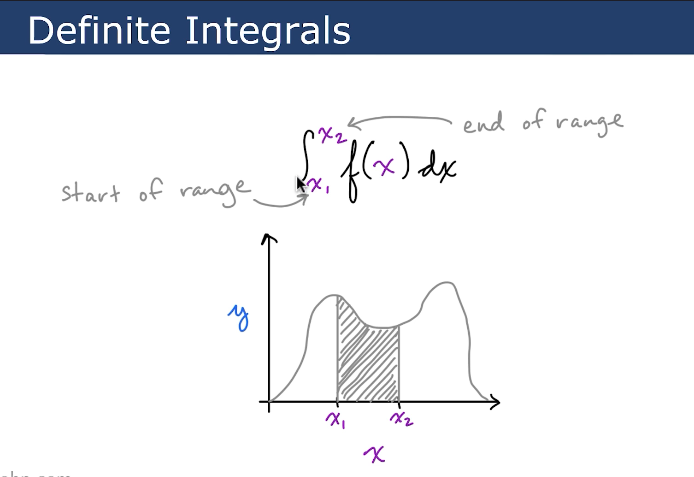 Definite Integrals
end of range
∫ₓ₁ˣ² f(x) dx
start of range
y
x₁ x₂
x